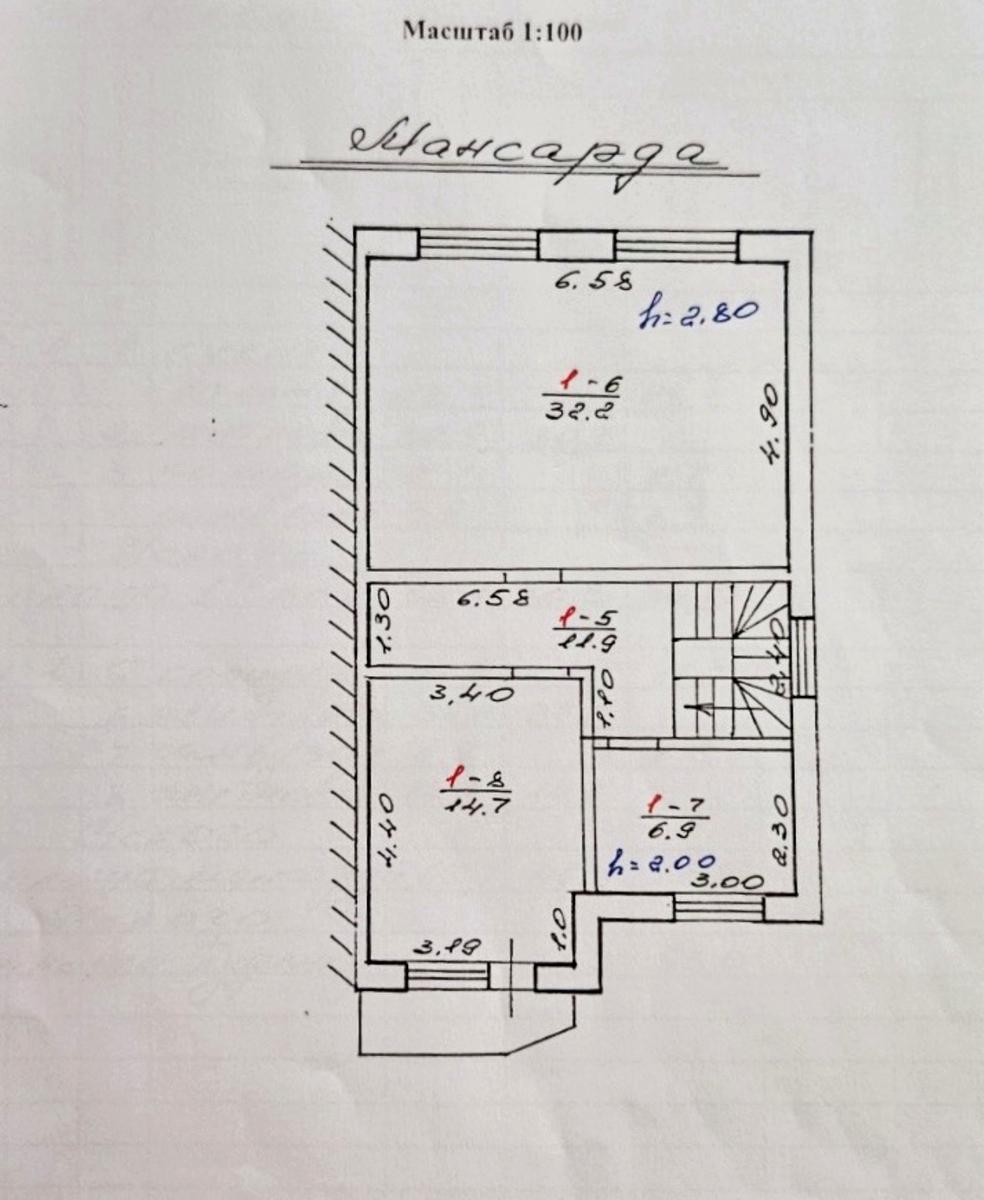 Масштаб 1:100
Мансарда
6.58
h=2.80
1-6
32.2
4.90
6.58
1.30
1-5
11.9
2.40
3,40
1.10
1-8
14.7
4.40
1-7
6.9
2.30
h=2.00
3.00
3.19
1.0